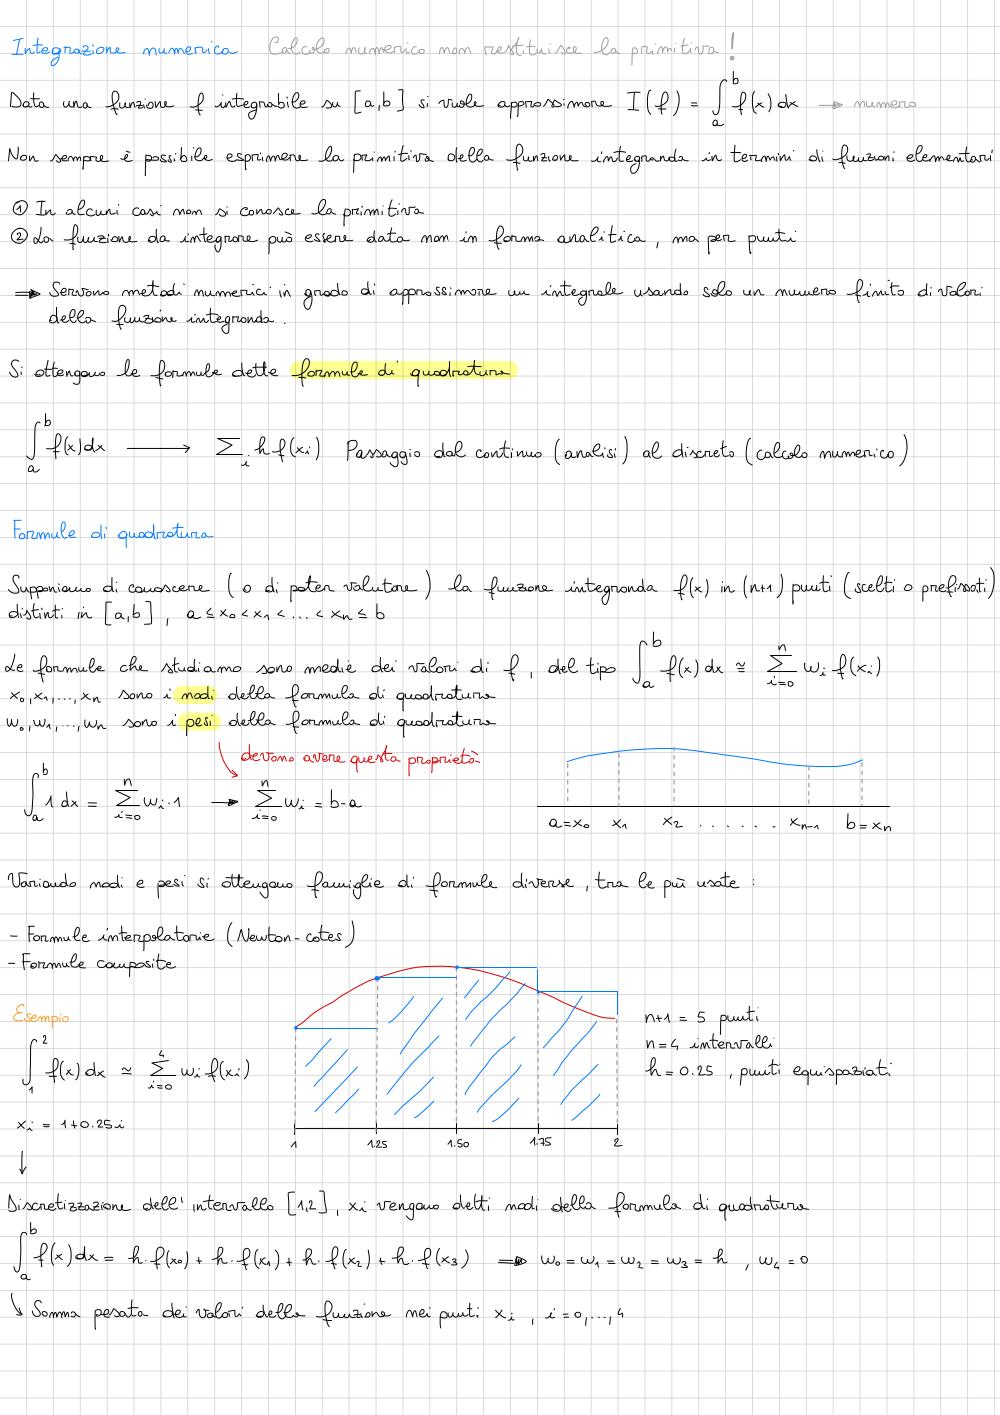 Integrazione numerica Calcolo numerico non restituisce la primitiva !
Data una funzione f integrabile su [a,b] si vuole approssimare I(f) = ∫_a^b f(x) dx → numero
Non sempre è possibile esprimere la primitiva della funzione integranda in termini di funzioni elementari
① In alcuni casi non si conosce la primitiva
② La funzione da integrare può essere data non in forma analitica, ma per punti
⇒ Servono metodi numerici in grado di approssimare un integrale usando solo un numero finito di valori
della funzione integranda.
Si ottengono le formule dette formule di quadratura
∫_a^b f(x) dx → Σ_i h f(x_i) Passaggio dal continuo (analisi) al discreto (calcolo numerico)
Formule di quadratura
Supponiamo di conoscere (o di poter valutare) la funzione integranda f(x) in (n+1) punti (scelti o prefissati)
distinti in [a,b], a ≤ x_0 < x_1 < ... < x_n ≤ b
Le formule che studiamo sono medie dei valori di f, del tipo ∫_a^b f(x) dx ≅ Σ_{i=0}^n w_i f(x_i)
x_0, x_1, ..., x_n sono i nodi della formula di quadratura
w_0, w_1, ..., w_n sono i pesi della formula di quadratura
devono avere questa proprietà
∫_a^b 1 dx = Σ_{i=0}^n w_i · 1 → Σ_{i=0}^n w_i = b-a
a=x_0 x_1 x_2 . . . . . . . x_{n-1} b=x_n
Variando nodi e pesi si ottengono famiglie di formule diverse, tra le più usate :
- Formule interpolatorie (Newton-cotes)
- Formule composite
Esempio
∫_1^2 f(x) dx ≃ Σ_{i=0}^4 w_i f(x_i)
x_i = 1+0.25i
1 1.25 1.50 1.75 2
n+1 = 5 punti
n=4 intervalli
h = 0.25 , punti equispaziati
↓
Discretizzazione dell' intervallo [1,2], x_i vengono detti nodi della formula di quadratura
∫_a^b f(x) dx = h · f(x_0) + h · f(x_1) + h · f(x_2) + h · f(x_3) ⇒ w_0 = w_1 = w_2 = w_3 = h , w_4 = 0
↳ Somma pesata dei valori della funzione nei punti x_i , i = 0,...,4